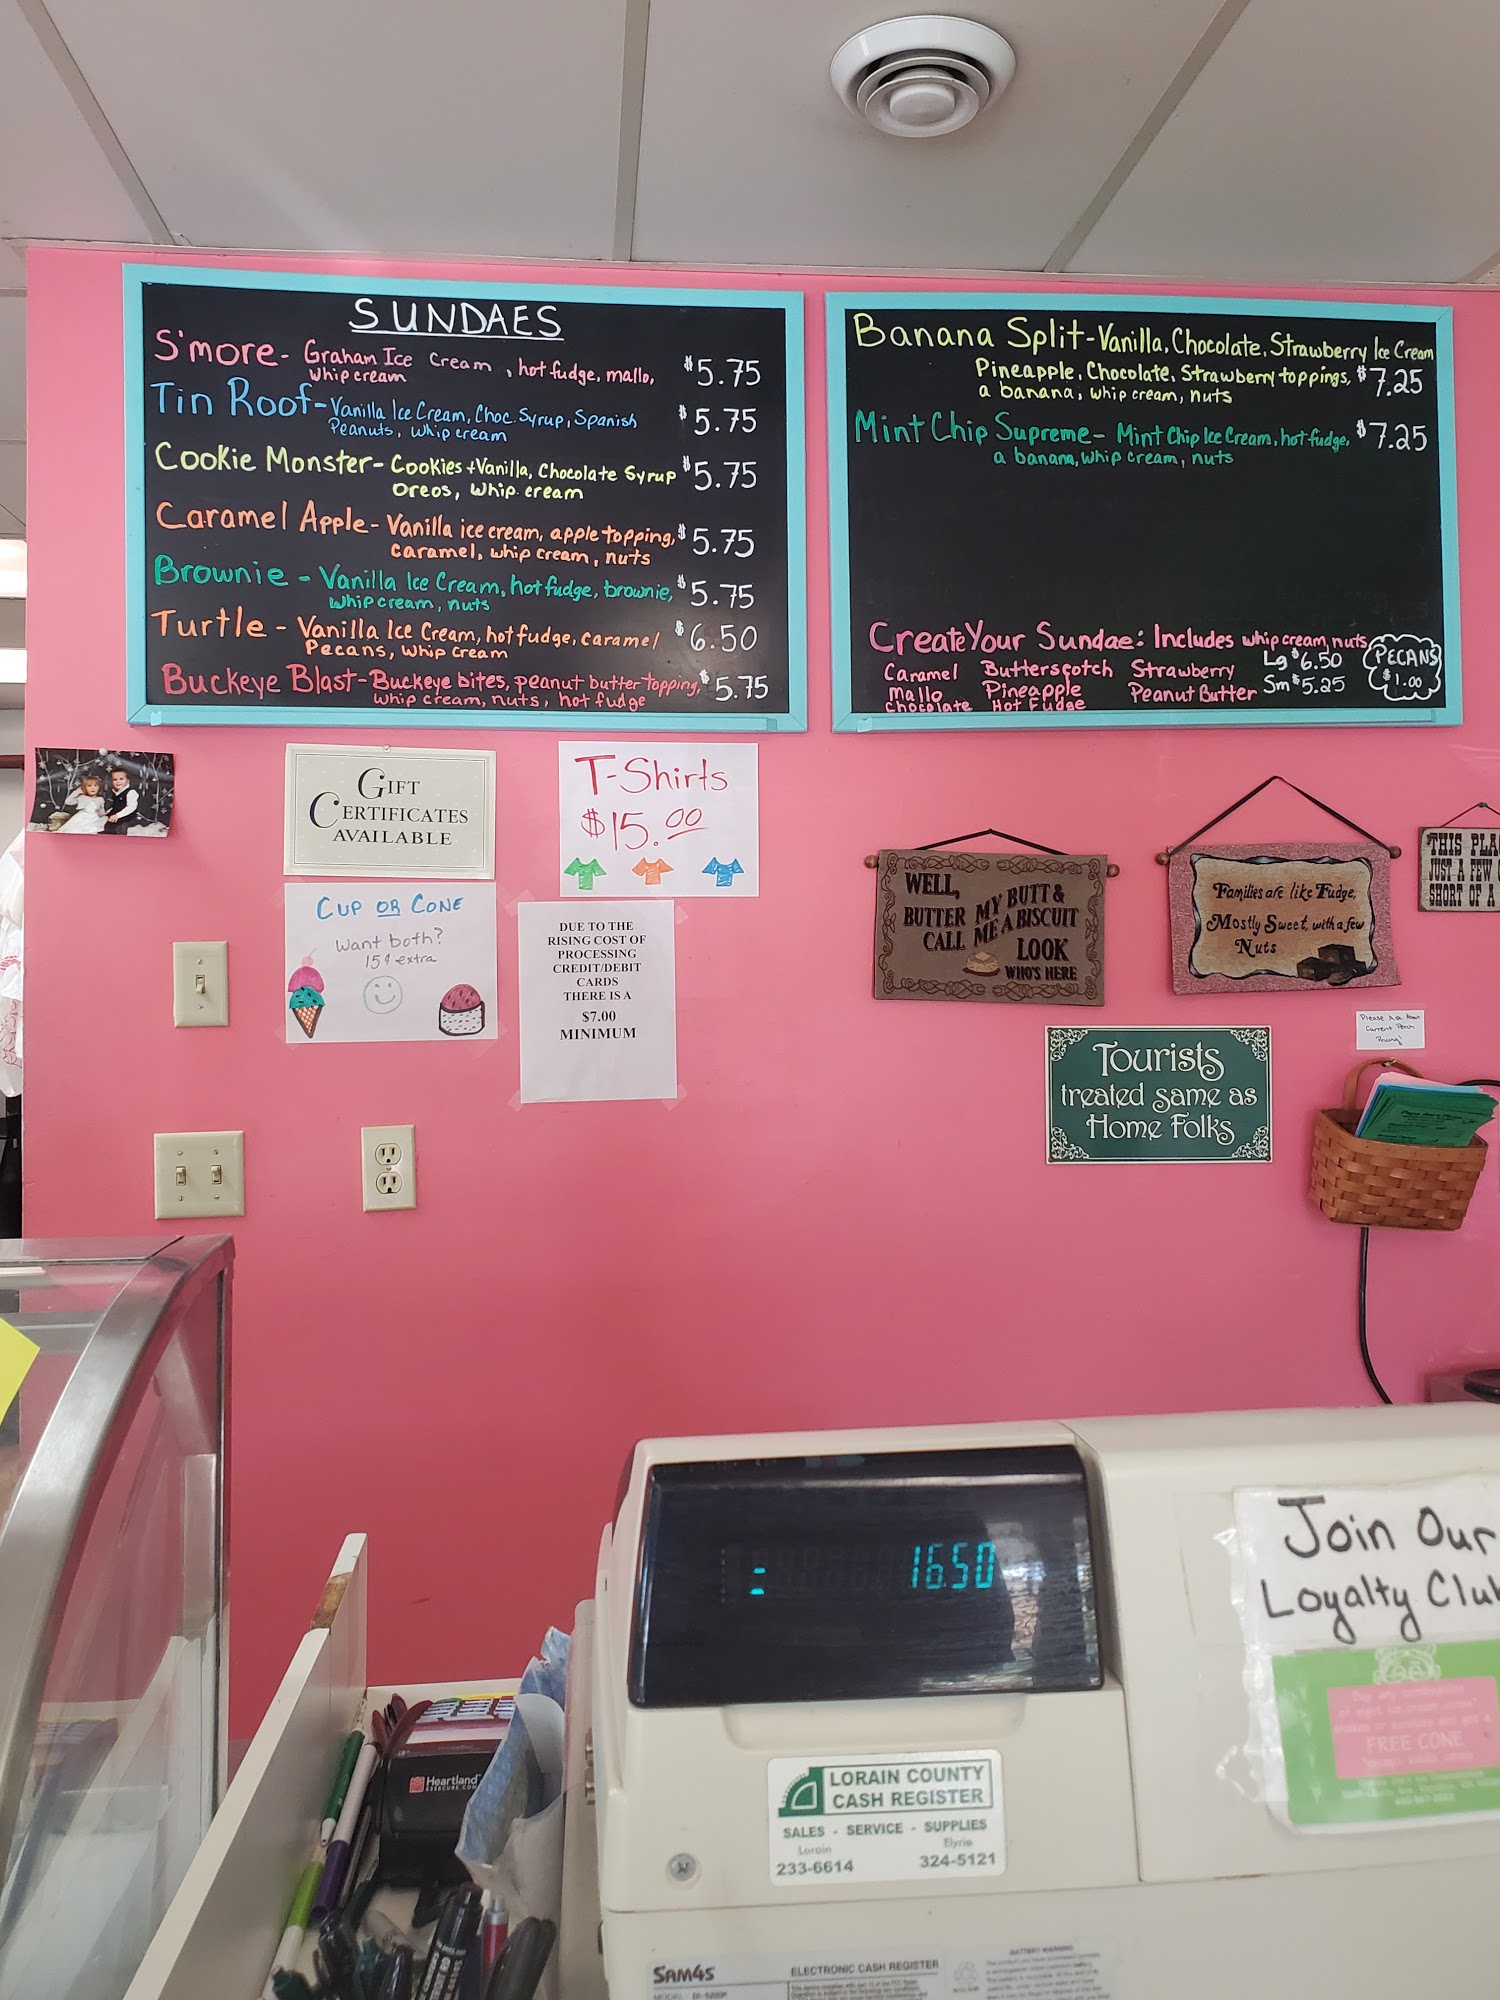 SUNDAES
S'more - Graham Ice Cream, hot fudge, mallo, $5.75
whip cream
Tin Roof - Vanilla Ice Cream, Choc. Syrup, Spanish $5.75
Peanuts, whip cream
Cookie Monster - Cookies + Vanilla, Chocolate Syrup $5.75
Oreos, whip cream
Caramel Apple - Vanilla ice cream, apple topping, $5.75
caramel, whip cream, nuts
Brownie - Vanilla Ice Cream, hot fudge, brownie, $5.75
whip cream, nuts
Turtle - Vanilla Ice Cream, hot fudge, caramel $6.50
Pecans, whip cream
Buckeye Blast - Buckeye bites, peanut butter topping, $5.75
whip cream, nuts, hot fudge
Banana Split - Vanilla, Chocolate, Strawberry Ice Cream
Pineapple, Chocolate, Strawberry toppings, $7.25
a banana, whip cream, nuts
Mint Chip Supreme - Mint Chip Ice Cream, hot fudge, $7.25
a banana, whip cream, nuts
Create Your Sundae: Includes whip cream, nuts
Caramel Butterscotch Strawberry Lg $6.50
mallo Pineapple Peanut Butter Sm $5.25
Chocolate Hot Fudge
PECANS
$1.00
GIFT
CERTIFICATES
AVAILABLE
T-Shirts
$15.00
CUP OR CONE
Want both?
15¢ extra
DUE TO THE
RISING COST OF
PROCESSING
CREDIT/DEBIT
CARDS
THERE IS A
$7.00
MINIMUM
WELL,
BUTTER MY BUTT &
CALL ME A BISCUIT
LOOK
WHO'S HERE
Families are like Fudge,
Mostly Sweet, with a few
Nuts
THIS PLA
JUST A FEW
SHORT OF A
Tourists
treated same as
Home Folks
Please Ask About
Current Perch
Pricing
16.50
Join Our
Loyalty Club
FREE CONE
Heartland
LORAIN COUNTY
CASH REGISTER
SALES - SERVICE - SUPPLIES
Lorain Elyria
233-6614 324-5121
SAM4S
ELECTRONIC CASH REGISTER
MODEL
BATTERY WARNING